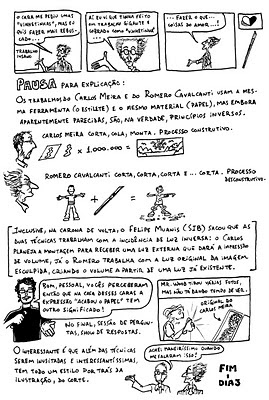 O CARA ME PEDIU UMAS
"VINHETINHAS", MAS EU
QUIS FAZER MAIS REBUS-
CADO...
TRABALHO
INSANO
AÍ EU VI QUE TINHA FEITO
UM TRABALHO GIGANTE E
COBRADO COMO "VINHETINHA"
... FAZER O QUE...
COISAS DO AMOR...!
PAUSA PARA EXPLICAÇÃO:
OS TRABALHOS DO CARLOS MEIRA E DO ROMERO CAVALCANTI USAM A MES-
MA FERRAMENTA (O ESTILETE) E O MESMO MATERIAL (PAPEL), MAS EMBORA
APARENTEMENTE PARECIDAS, SÃO, NA VERDADE, PRINCÍPIOS INVERSOS.
CARLOS MEIRA CORTA, COLA, MONTA. PROCESSO CONSTRUTIVO.
X 1.000.000 =
ROMERO CAVALCANTI: CORTA, CORTA, CORTA E... CORTA. PROCESSO
DESCONSTRUTIVO.
+ =
INCLUSIVE, NA CARONA DE VOLTA, O FELIPE MUANIS (SIB) SACOU QUE AS
DUAS TÉCNICAS TRABALHAM COM A INCIDÊNCIA DE LUZ INVERSA: O CARLOS
PLANEJA A MONTAGEM PARA RECEBER UMA LUZ EXTERNA QUE DARÁ A IMPRESSÃO
DE VOLUME, JÁ O ROMERO TRABALHA COM A LUZ ORIGINAL DA IMAGEM
ESCULPIDA, CRIANDO O VOLUME A PARTIR DE UMA LUZ JÁ EXISTENTE.
BOM, PESSOAL, VOCÊS PERCEBERAM
ENTÃO QUE NA CASA DESSES CARAS A
EXPRESSÃO "ACABOU O PAPEL" TEM
OUTRO SIGNIFICADO!
NO FINAL, SESSÃO DE PERGUN-
TAS, SHOW DE RESPOSTAS.
MR. WOOD TIROU VÁRIAS FOTOS,
MAS NÃO TÁ DANDO TEMPO DE VER.
ORIGINAL DO
CARLOS MEIRA
O INTERESSANTE É QUE ALÉM DAS TÉCNICAS
SEREM INUSITADAS E INTERESSANTÍSSIMAS,
TEM TODO UM ESTILO POR TRÁS DA
ILUSTRAÇÃO, DO CORTE.
ACHEI MANEIRÍSSIMO QUANDO
ME FALARAM ISSO!
FIM
DIA 3